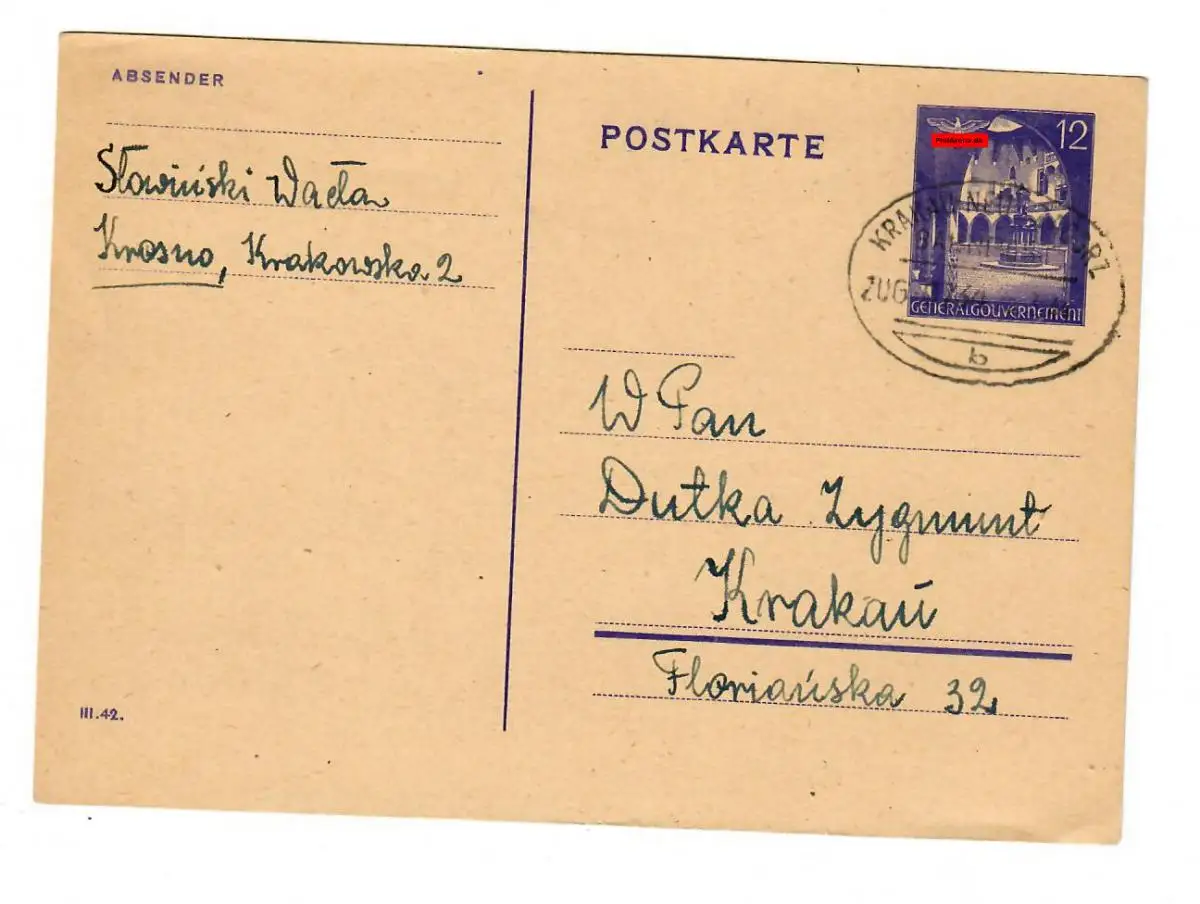 ABSENDER
Słowiński Wacław
Krosno, Krakowska 2
III.42.
POSTKARTE
12
GENERALGOUVERNEMENT
KRAKAU
ZUG
b
W Pan
Dutka Zygmunt
Krakau
Floriańska 32